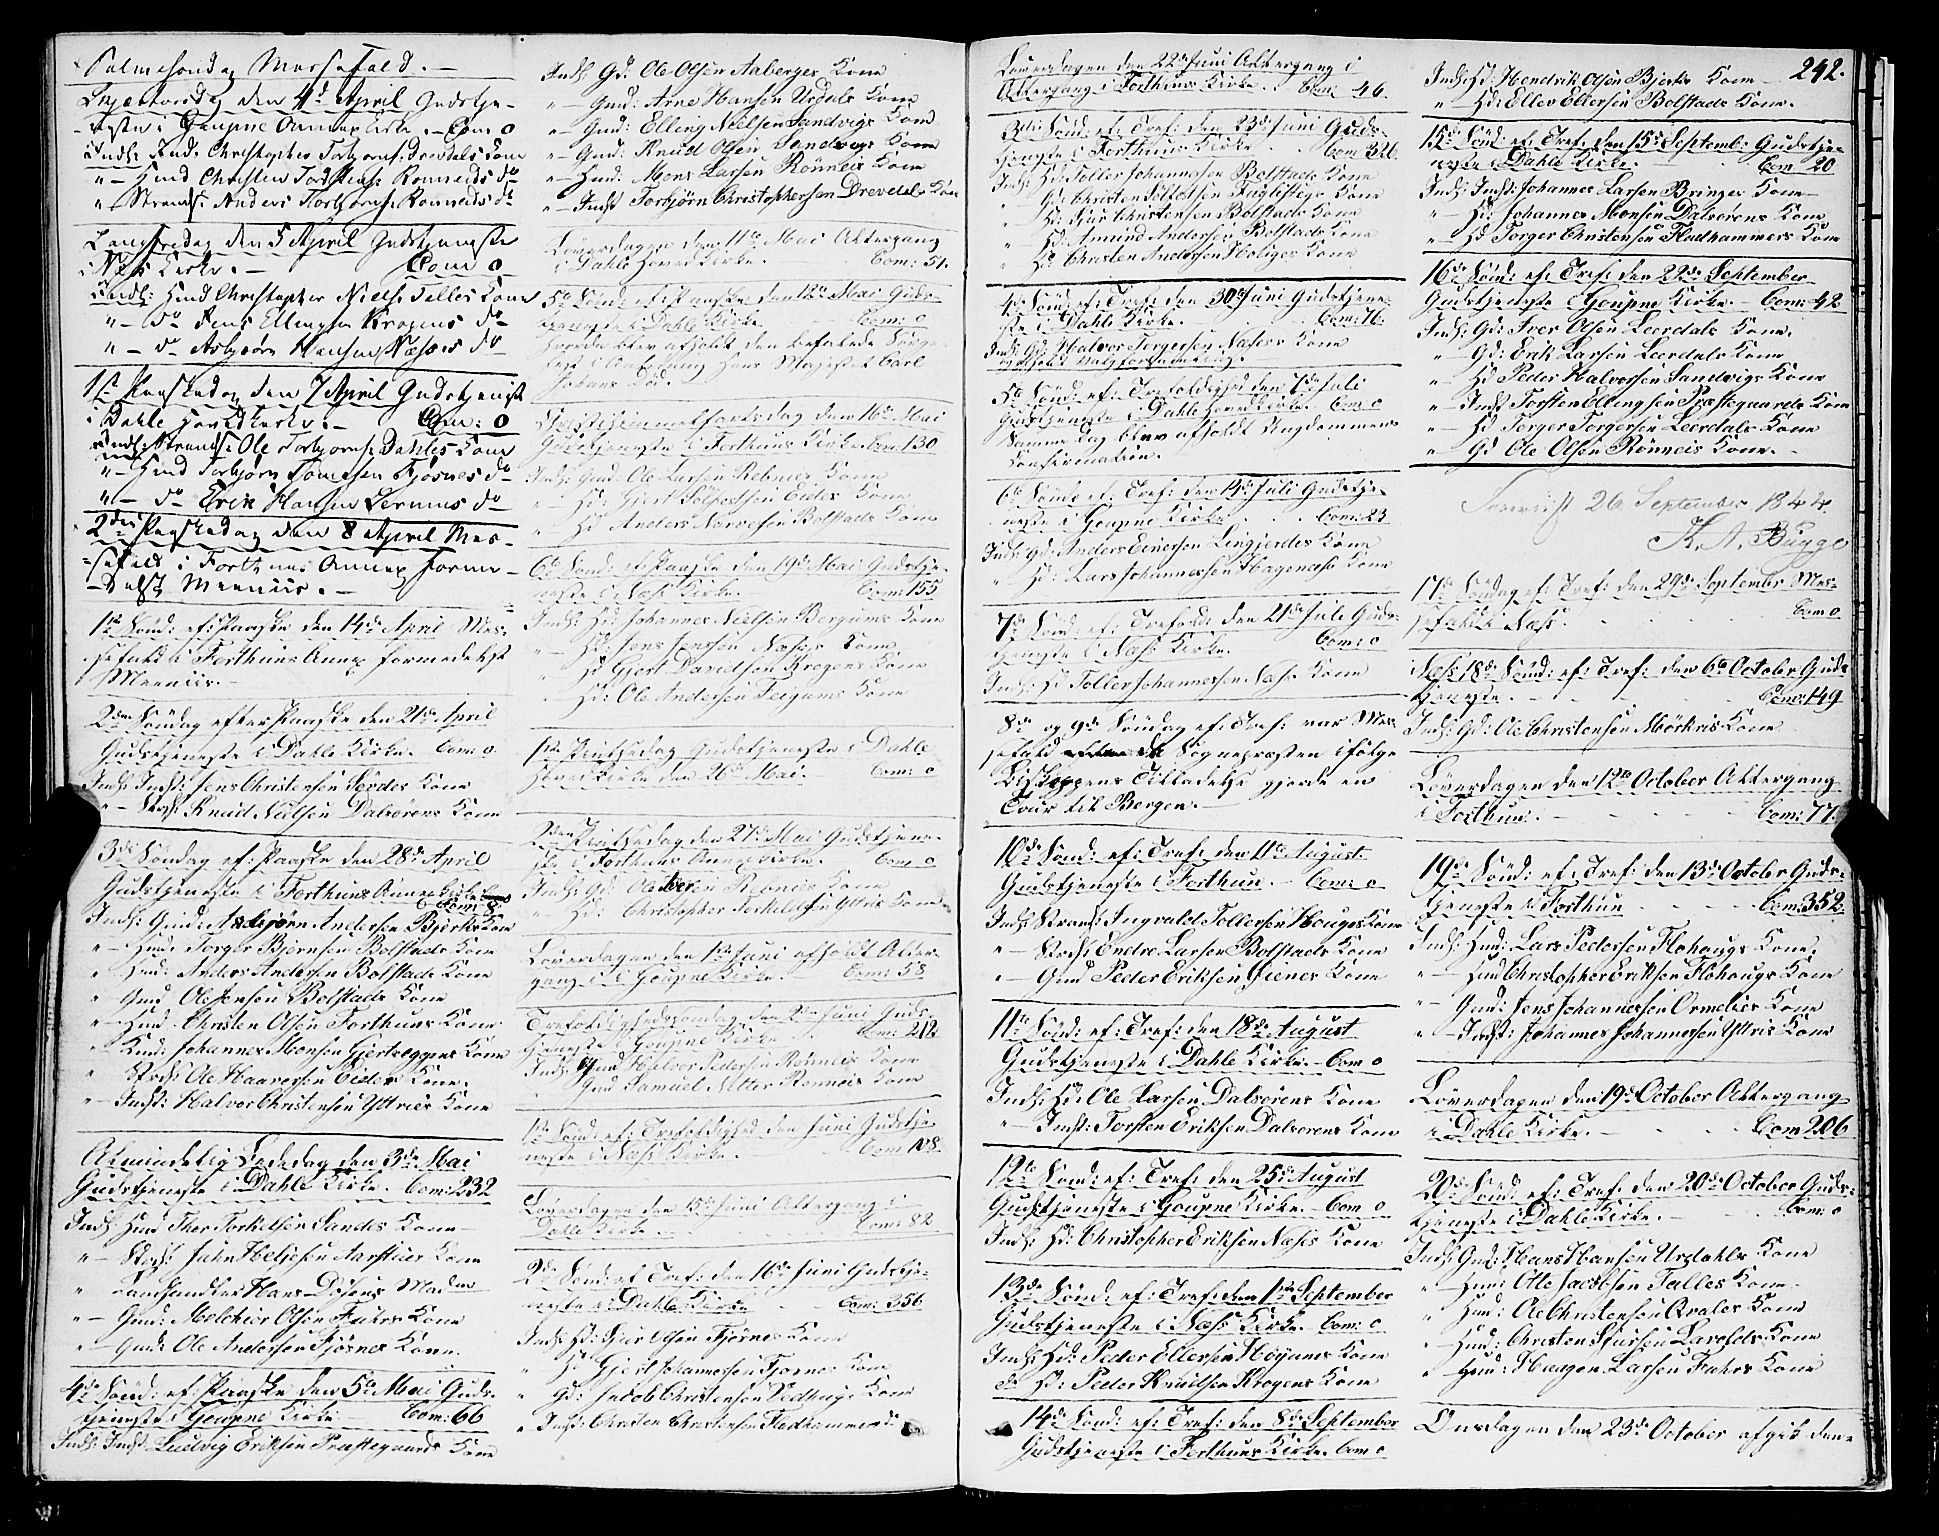 Palmesöndag Messefald. —
Skjærtorsdag den 4de April Gudstje-
neste i Goupne Annexkirke. — Com: 0
Indl: Ind. Christopher Torbjørns: Drevdals Kone
" — Hmd Christen Torstens: Rønneids do
" Strands: Anders Torbjørns: Rønneids do
Langfredag den 5 April Gudstjeneste
i Næs Kirke. — Com 0
Indl: Hmd Christopher Niels: Talles Kone
" — do Jens Ellingsen Krogens do
" — do Asbjørn Hansen Næsses do
1ste Paaskedag den 7 April Gudstjeneste
i Dahle Hovedkirke. — Com: 0
Indl: Strands: Ole Torbjørns: Dahles Kone
" — Hmd Torbjørn Tomessen Fjøsnes do
" — do Erik Hansen do
2den Paaskedag den 8 April Mes-
sefald i Forthuns Annex forme-
delst Meeniis. —
1ste Sönd: ef: Paaske den 14de April Mes-
sefald i Forthuns Annex formedelst
Meeniis. —
2den Söndag efter Paaske den 21de April
Gudstjeneste i Dahle Kirke. Com: 0
Indl: Indst: Jens Christensen Sördes Kone
" — Strds: Knud Nielsen Dalsørens Kone
3de Söndag ef: Paaske den 28de April
Gudstjeneste i Forthuns Annex Kirke
Com: 8
Indl: Gmd: Asbjørn Andersen Bjørks Kone
" — Hmd: Torger Bjørnsen Bolstads Kone
" Hmd: Anders Andersen Bolstads Kone
" Gmd Ole Jensen Bolstads Kone
" — Hmd. Christen Olsen Forthuns Kone
" Hmd: Johannes Monsen Gjertseggens Kone
" Strds: Ole Haaversen Eides Kone.
" — Indst: Halvor Christensen Yttries Kone
Almindelig Bededag den 3de Mai
Gudstjeneste i Dahle Kirke. Com: 232
Indl: Hmd Thor Torkelsen Sandes Kone
" — Strds: John Heljesen Aarstuer Kone
" Landhandler Hans Døsens Madam
" — Gmd: Melchior Olsen Fuhrs Kone
" — Gmd: Ole Andersen Fjøsnes Kone.
4de Sönd: ef: Paaske den 5te Mai Guds-
tjeneste i Goupne Kirke — Com: 66
Indl: Indst. Ludvig Eriksen Præstegaards Kone
Indl: Gd. Ole Olsen Aaberges Kone
" — Gmd: Arne Hansen Urdals Kone
" — Gmd: Elling Nielsen Sandvigs Kone
" — Gmd: Knud Olsen Sandvigs Kone
" — Hmd: Mons Larsen Rönneis Kone
" — Indst Torbjørn Christophersen Drevdals Kone
Løverdagen den 11te Mai Altergang
i Dahle Hovedkirke. Com: 51.
5te Sönd: ef: Paaske den 12te Mai Guds-
tjeneste i Dahle Kirke. Com: 0
Hvorda blev afholdt den befalede Sørge-
fest i Anledning Hans Majestet Carl
Johans Död.
Christi Himmelfartsdag den 16de Mai
Gudstjeneste i Forthuns Kirke. Com: 130
Indl: Gmd: Ole Larsen Rebnies Kone
" — Hd: Gjert Eides Kone
" — Hd Anders Narvesen Bolstads Kone
6te Sönd: ef: Paaske den 19de Mai Gudstje-
neste i Næs Kirke. — Com: 155
Indl: Hd: Johannes Nielsen Bergums Kone
" — Hd: Jens Jensen Næses Kone
" Hd Gjert Davidsen Krogens Kone
" Hd: Ole Andersen Teigums Kone
1ste Pintsedag Gudstjeneste i Dahle
Hovedkirke den 26de Mai. Com: 0
2den Pintsedag den 27de Mai Gudstjene-
ste i Forthuns Annexkirke. Com: 0
Indl: Gd: Ole Iversen Rebnies Kone
" Hd: Christopher Torkildsen Yttris Kone
Løverdagen den 1ste Juni afholdt Alter-
gang i Goupne Kirke. Com: 58
Trefoldighedssøndag den 2den Juni Guds-
tjeneste i Goupne Kirke. Com: 212
Indl: Gmd Halvor Pedersen Rønneis Kone
" Gmd Samuel Nitter Rønneis Kone
1ste Sönd: ef: Trefoldighed den Juni Gudstje-
neste i Næs Kirke. Com 108.
Løverdagen den 15de Juni Altergang i
Dahle Kirke. Com: 82
2den Sönd: ef Tref: den 16de Juni Gudstje-
neste i Dahle Kirke Com: 356
Indl: Hd: Siur Olsen Fjøsnes Kone
" Hd Gjert Johannessen Fjøsnes Kone
" Gd: Jacob Christensen Vedhugs Kone
" Indst: Christen Christensen Fladhammers do
Løverdagen den 22de Juni Altergang i
Altergang i Forthuns Kirke. Com: 46.
3die Sönd: ef: Tref: den 23de Juni Guds-
tjeneste i Forthuns Kirke. Com 326.
Indl: Hd: Toller Johannessen Bolstads Kone
" Gd: Christen Fuglestegs Kone
" Hd: Siur Christensen Bolstads Kone
" Hd: Amund Andersen Bolstads Kone
" Hd: Christen Andersen Holiges Kone
4de Sönd: ef: Tref: den 30te Juni Gudstjene-
ste i Dahle Kirke. Com: 76.
Indl: Gd: Halvor Torgersen Næsses Kone
og afholdt Valgforsamling.
5te Sönd: ef: Trefoldighed den 7de Juli
Gudstjeneste i Dahle Hovedkirke. Com: 0
Samme Dag blev afholdt Ungdommens
Confirmation.
6te Sönd: ef: Tref: den 14de Juli Gudstje-
neste i Goupne Kirke. Com: 23
Indl: Gd: Anders Einersen Lingjerdes Kone
" Hd: Lars Johannessen Hagenæs Kone
7de Sönd: ef: Trefold: den 21de Juli Guds-
tjeneste i Næs Kirke. Com: 0
Indl: Hd Toller Johannessen Næses Kone
8de og 9de Söndag ef: Tref: var Mes-
sefald da Sognepræsten ifølge
Biskoppens Tilladelse gjorde en
Tour til Bergen. —
10de Sönd: ef: Tref: den 11te August:
Gudstjeneste i Forthun. Com: 0
Indl: Strands: Ingvald Tollersen Houges Kone
" — Strds: Endre Larsen Bolstads Kone
" Gmd Peder Eriksen Gienes Kone
11te Sönd: ef: Tref: den 18de August
Gudstjeneste i Dahle Kirke. Com 0
Indl: Hd: Ole Larsen Dalsørens Kone
" — Indst: Torsten Eriksen Dalsørens Kone
12te Sönd: ef: Tref: den 25de August
Gudstjeneste i Goupne Kirke. Com 0
Indl: Hd: Christopher Eriksen Næses Kone
13de Sönd: ef: Tref: den 1ste September
Gudstjeneste i Næs Kirke. Com: 0
Indl: Hd: Peder Ellersen Høyums Kone
do Hd: Peder Knudsen Krogens Kone
14de Sönd: ef: Tref: den 8de September
Gudstjeneste i Forthuns Kirke. Com 0
242.
Indl: Hd: Hendrik Olsen Bjørks Kone
" — Hd: Eller Ellersen Bolstads Kone.
15de Sönd: ef: Tref: den 15de Septemb: Gudstje-
neste i Dahle Kirke. Com 20
Indl: Indst: Johannes Larsen Bringes Kone
" — Hd: Johannes Monsen Dalsørens Kone
" — Hd Torger Christensen Fladhammers Kone
16de Sönd: ef: Tref: den 22de September
Gudstjeneste i Goupne Kirke. — Com: 42
Indl: Gd: Iver Olsen Leerdals Kone.
" Gd: Erik Larsen Leerdals Kone
" — Hd Peder Halvorsen Sandvigs Kone
" — Indst Torsten Ellingsen Præstegaards Kone
" — Hd Torger Torgersen Leerdals Kone
" Gd Ole Olsen Rönneis Kone. —
26 September 1844
K. N. Bugge
17de Söndag ef: Tref: den 29de September Mes-
sefald i Næs. Com 0
Næs: 18de Sönd: ef: Tref: den 6te October Guds-
tjeneste. Com: 149
Indl: Gd: Ole Christensen Mörkris Kone
Løverdagen den 12te October Altergang
i Forthun. Com: 77.
19de Sönd: ef: Tref: den 13de October Guds-
tjeneste i Forthun Com: 352.
Indl: Hmd: Lars Pedersen Flohougs Kone
" — Hmd Christopher Eriksen Flohougs Kone
" — Gmd: Jens Johannessen Ormelies Kone
" — Indst: Johannes Johannessen Yttries Kone
Løverdagen den 19de October Altergang
i Dahle Kirke. Com 206
20de Sönd: ef: Tref: den 20de October Guds-
tjeneste i Dahle Kirke. Com: 0
Indl: Gmd: Hans Hansen Urdahls Kone
" Hmd: Otte Jacobsen Talles Kone
" Hmd: Ole Christensen Qvales Kone
" — Hmd: Christen Siursen Kone
" — Gmd: Haagen Larsen Fuhrs Kone
Onsdagen den 23de October afgik den-